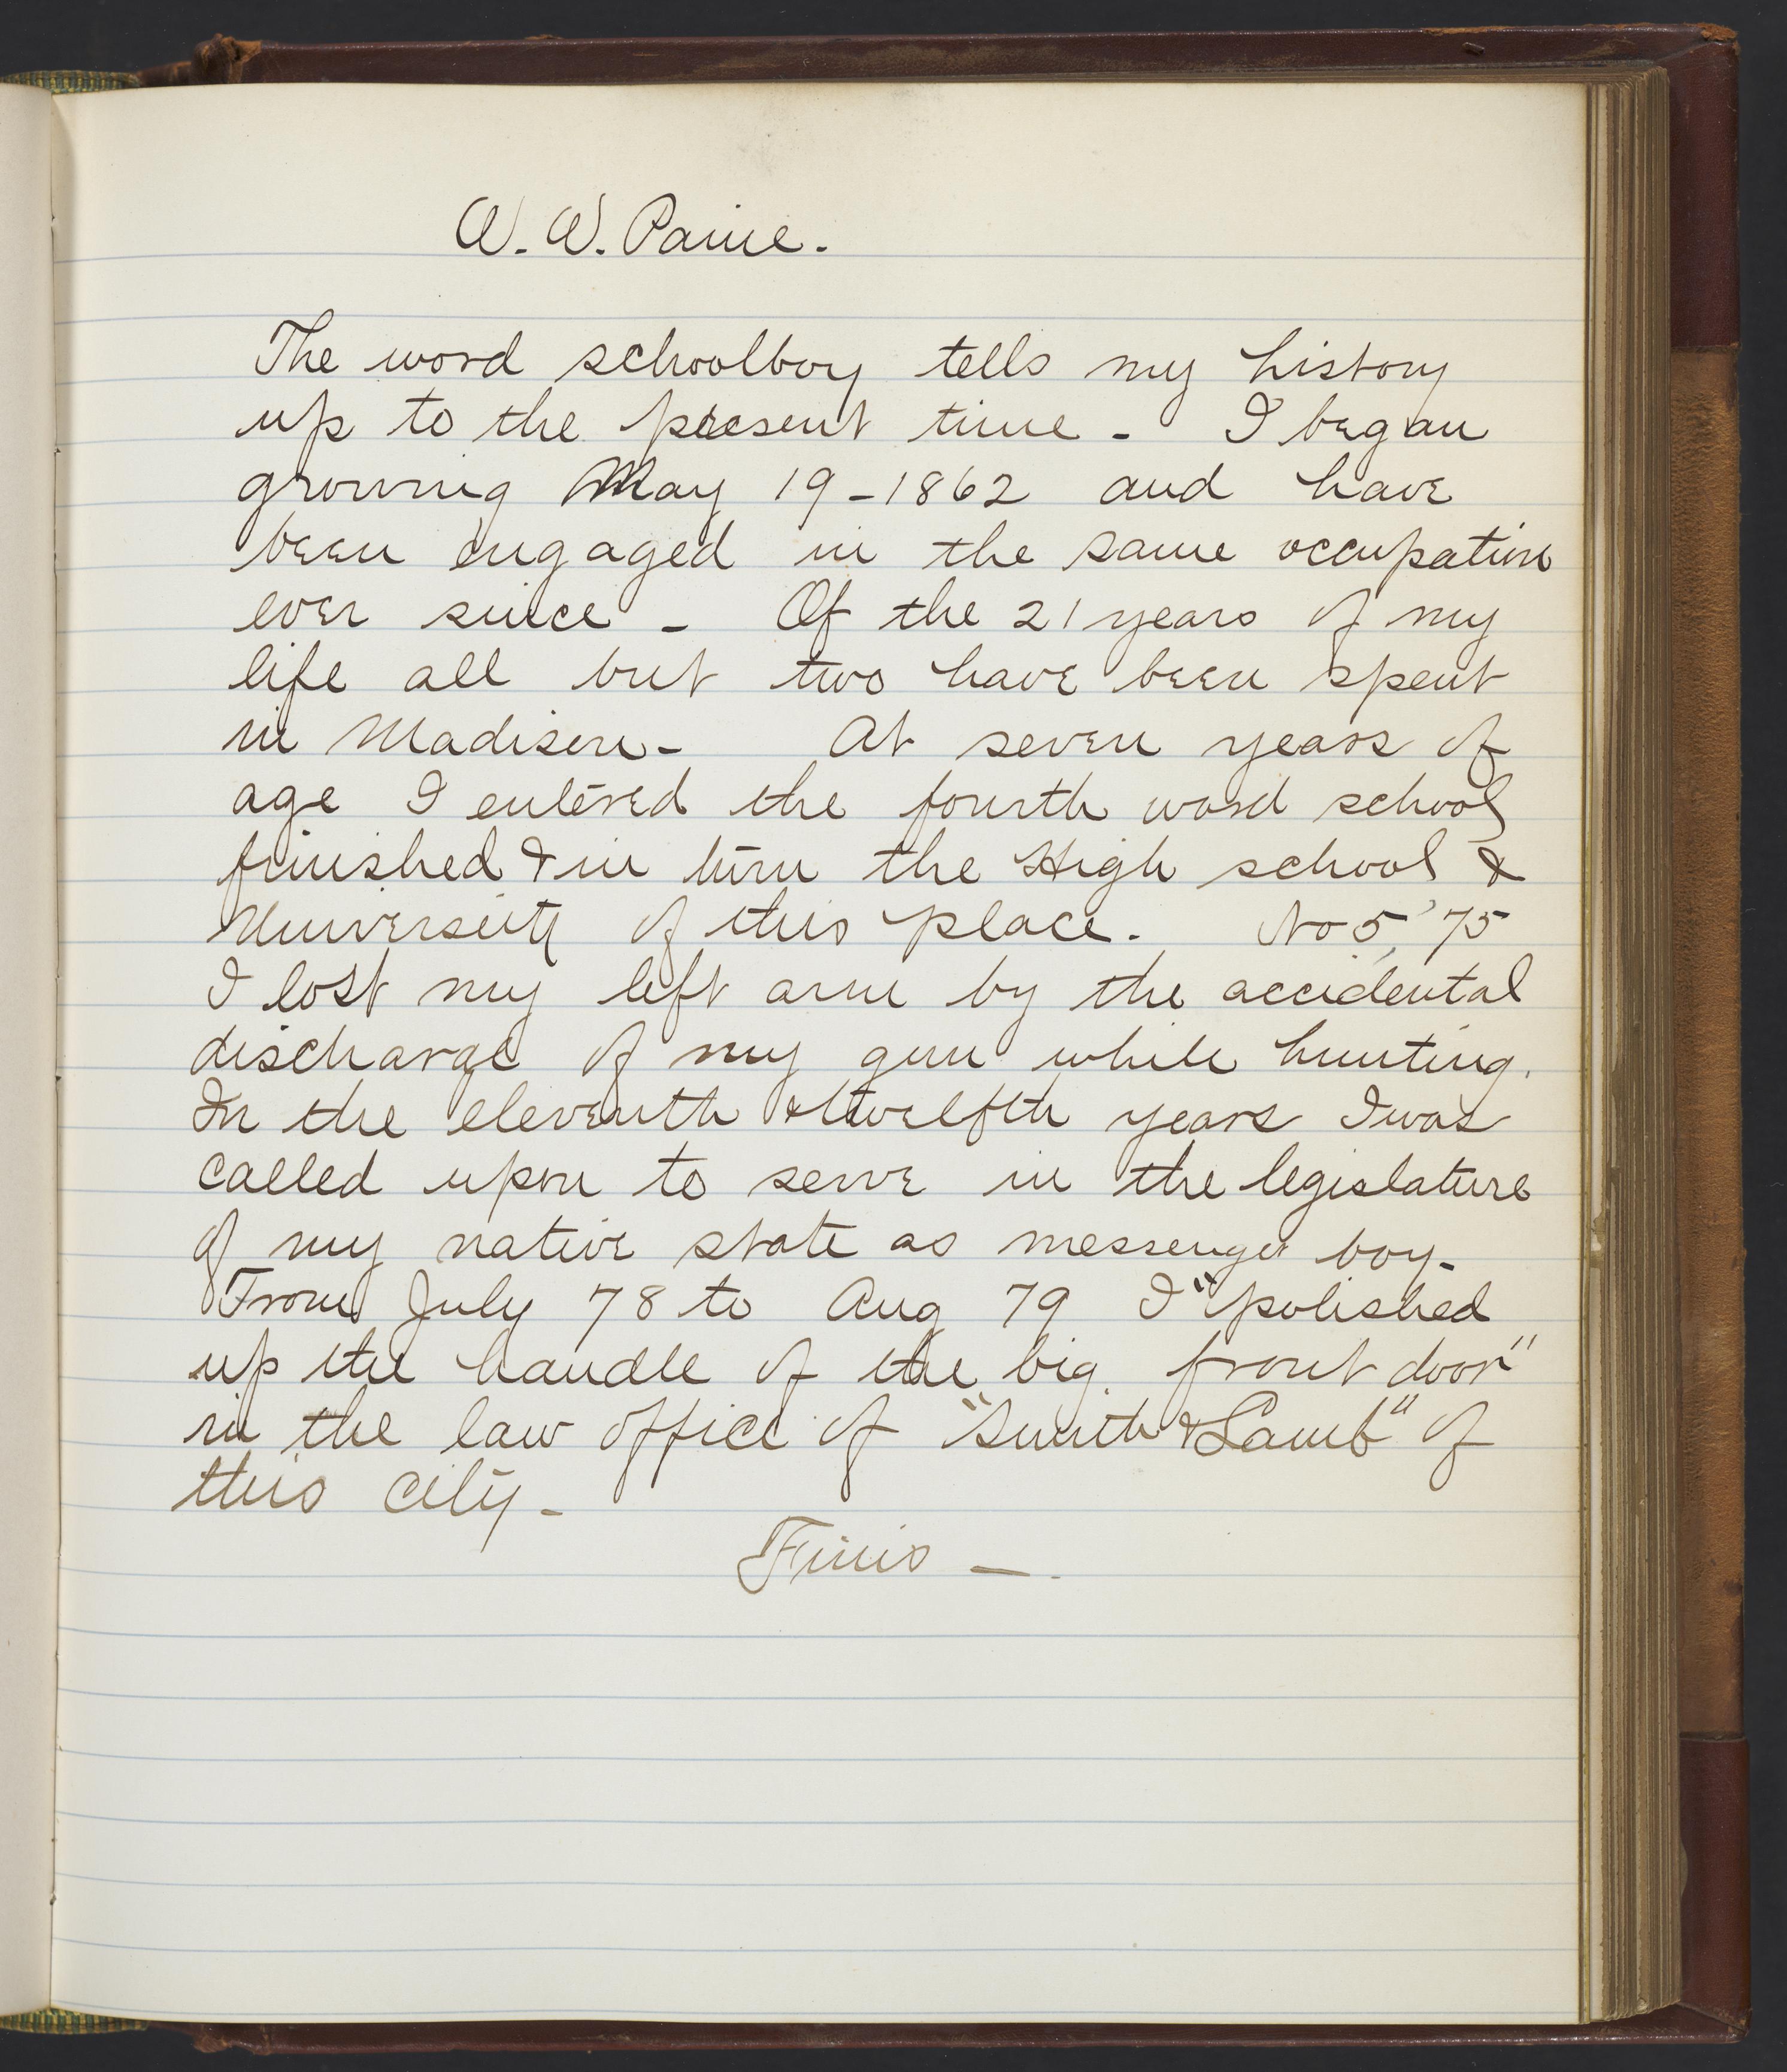 W. W. Paine.
The word schoolboy tells my history
up to the present time - I began
growing May 19-1862 and have
been engaged in the same occupation
ever since - Of the 21 years of my
life all but two have been spent
in Madison - At seven years of
age I entered the fourth ward school
finished & in turn the High school &
University of this place. No 5, '75
I lost my left arm by the accidental
discharge of my gun while hunting.
In the eleventh & twelfth years I was
called upon to serve in the legislature
of my native state as messenger boy -
From July 78 to Aug 79 I "polished
up the handle of the big front door"
in the law office of "Smith & Lamb" of
this city -
Finis -